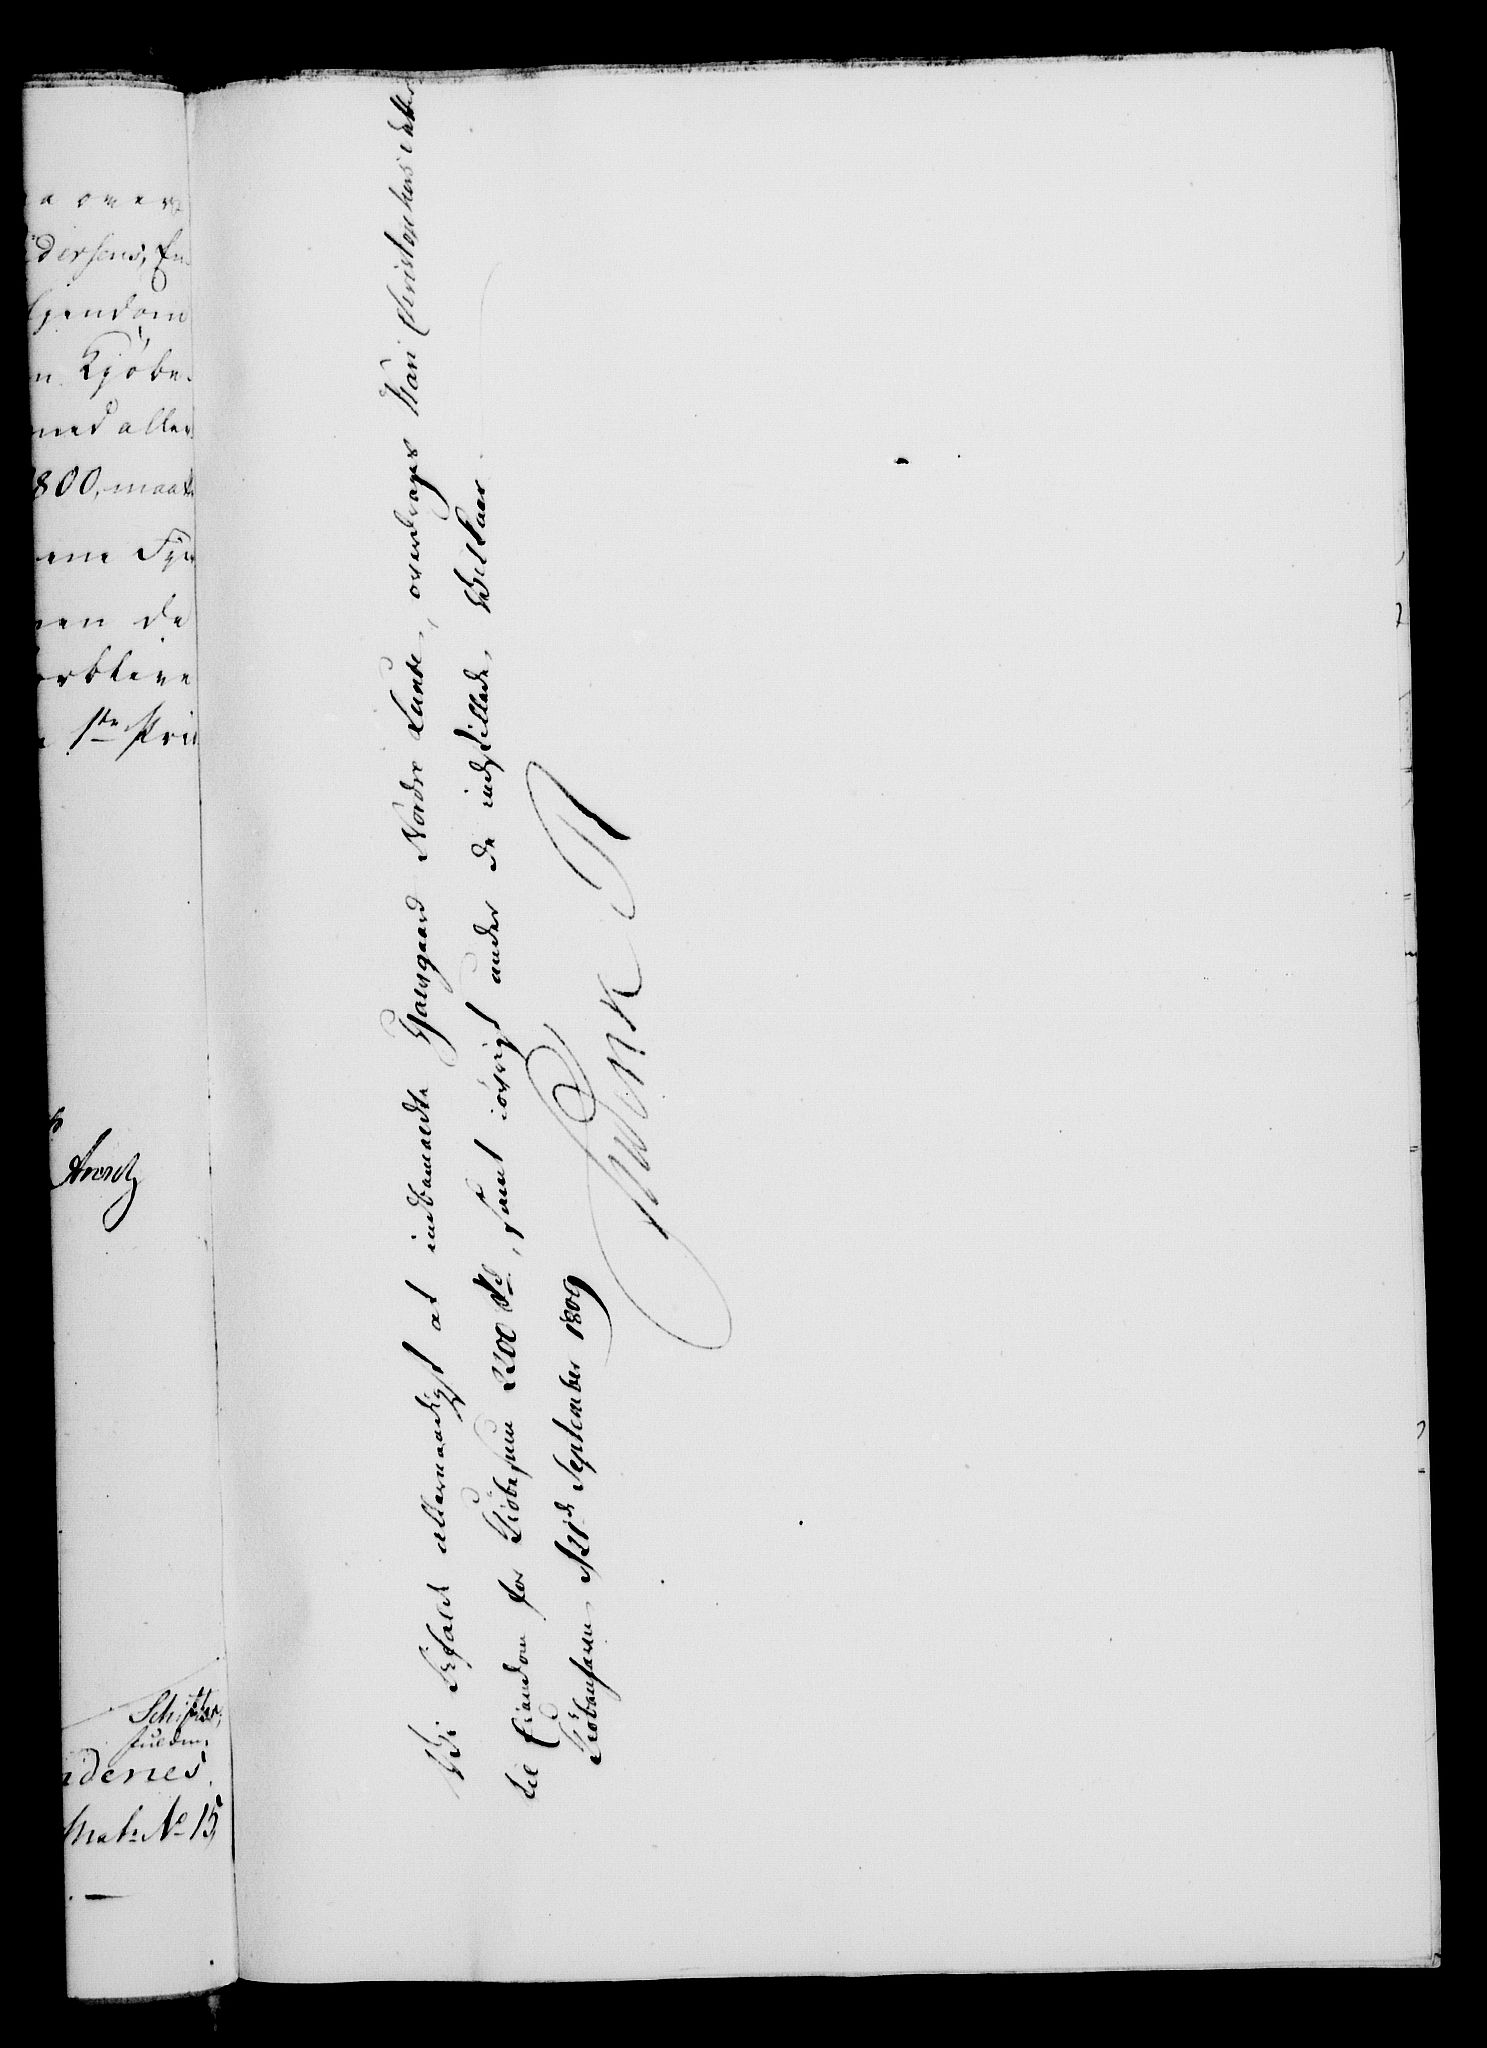 a over
dersens, En
Ejendom
n Kjöbe
med aller
1800, maat
ene Syn
nen de
orblive
1te Prio
Arentz
Schifter,
adenes
Matr. No 15
Vi befale allernaadigst at indbemeldte Gaard Nordre Lunde, overdrages Kari Christophersdatter
til Eiendom for Kiöbesum 2200 Rd, samt iövrigt under de indstillede Vilkaar
Kiöbenhavn d 21de September 1809
Frederik R